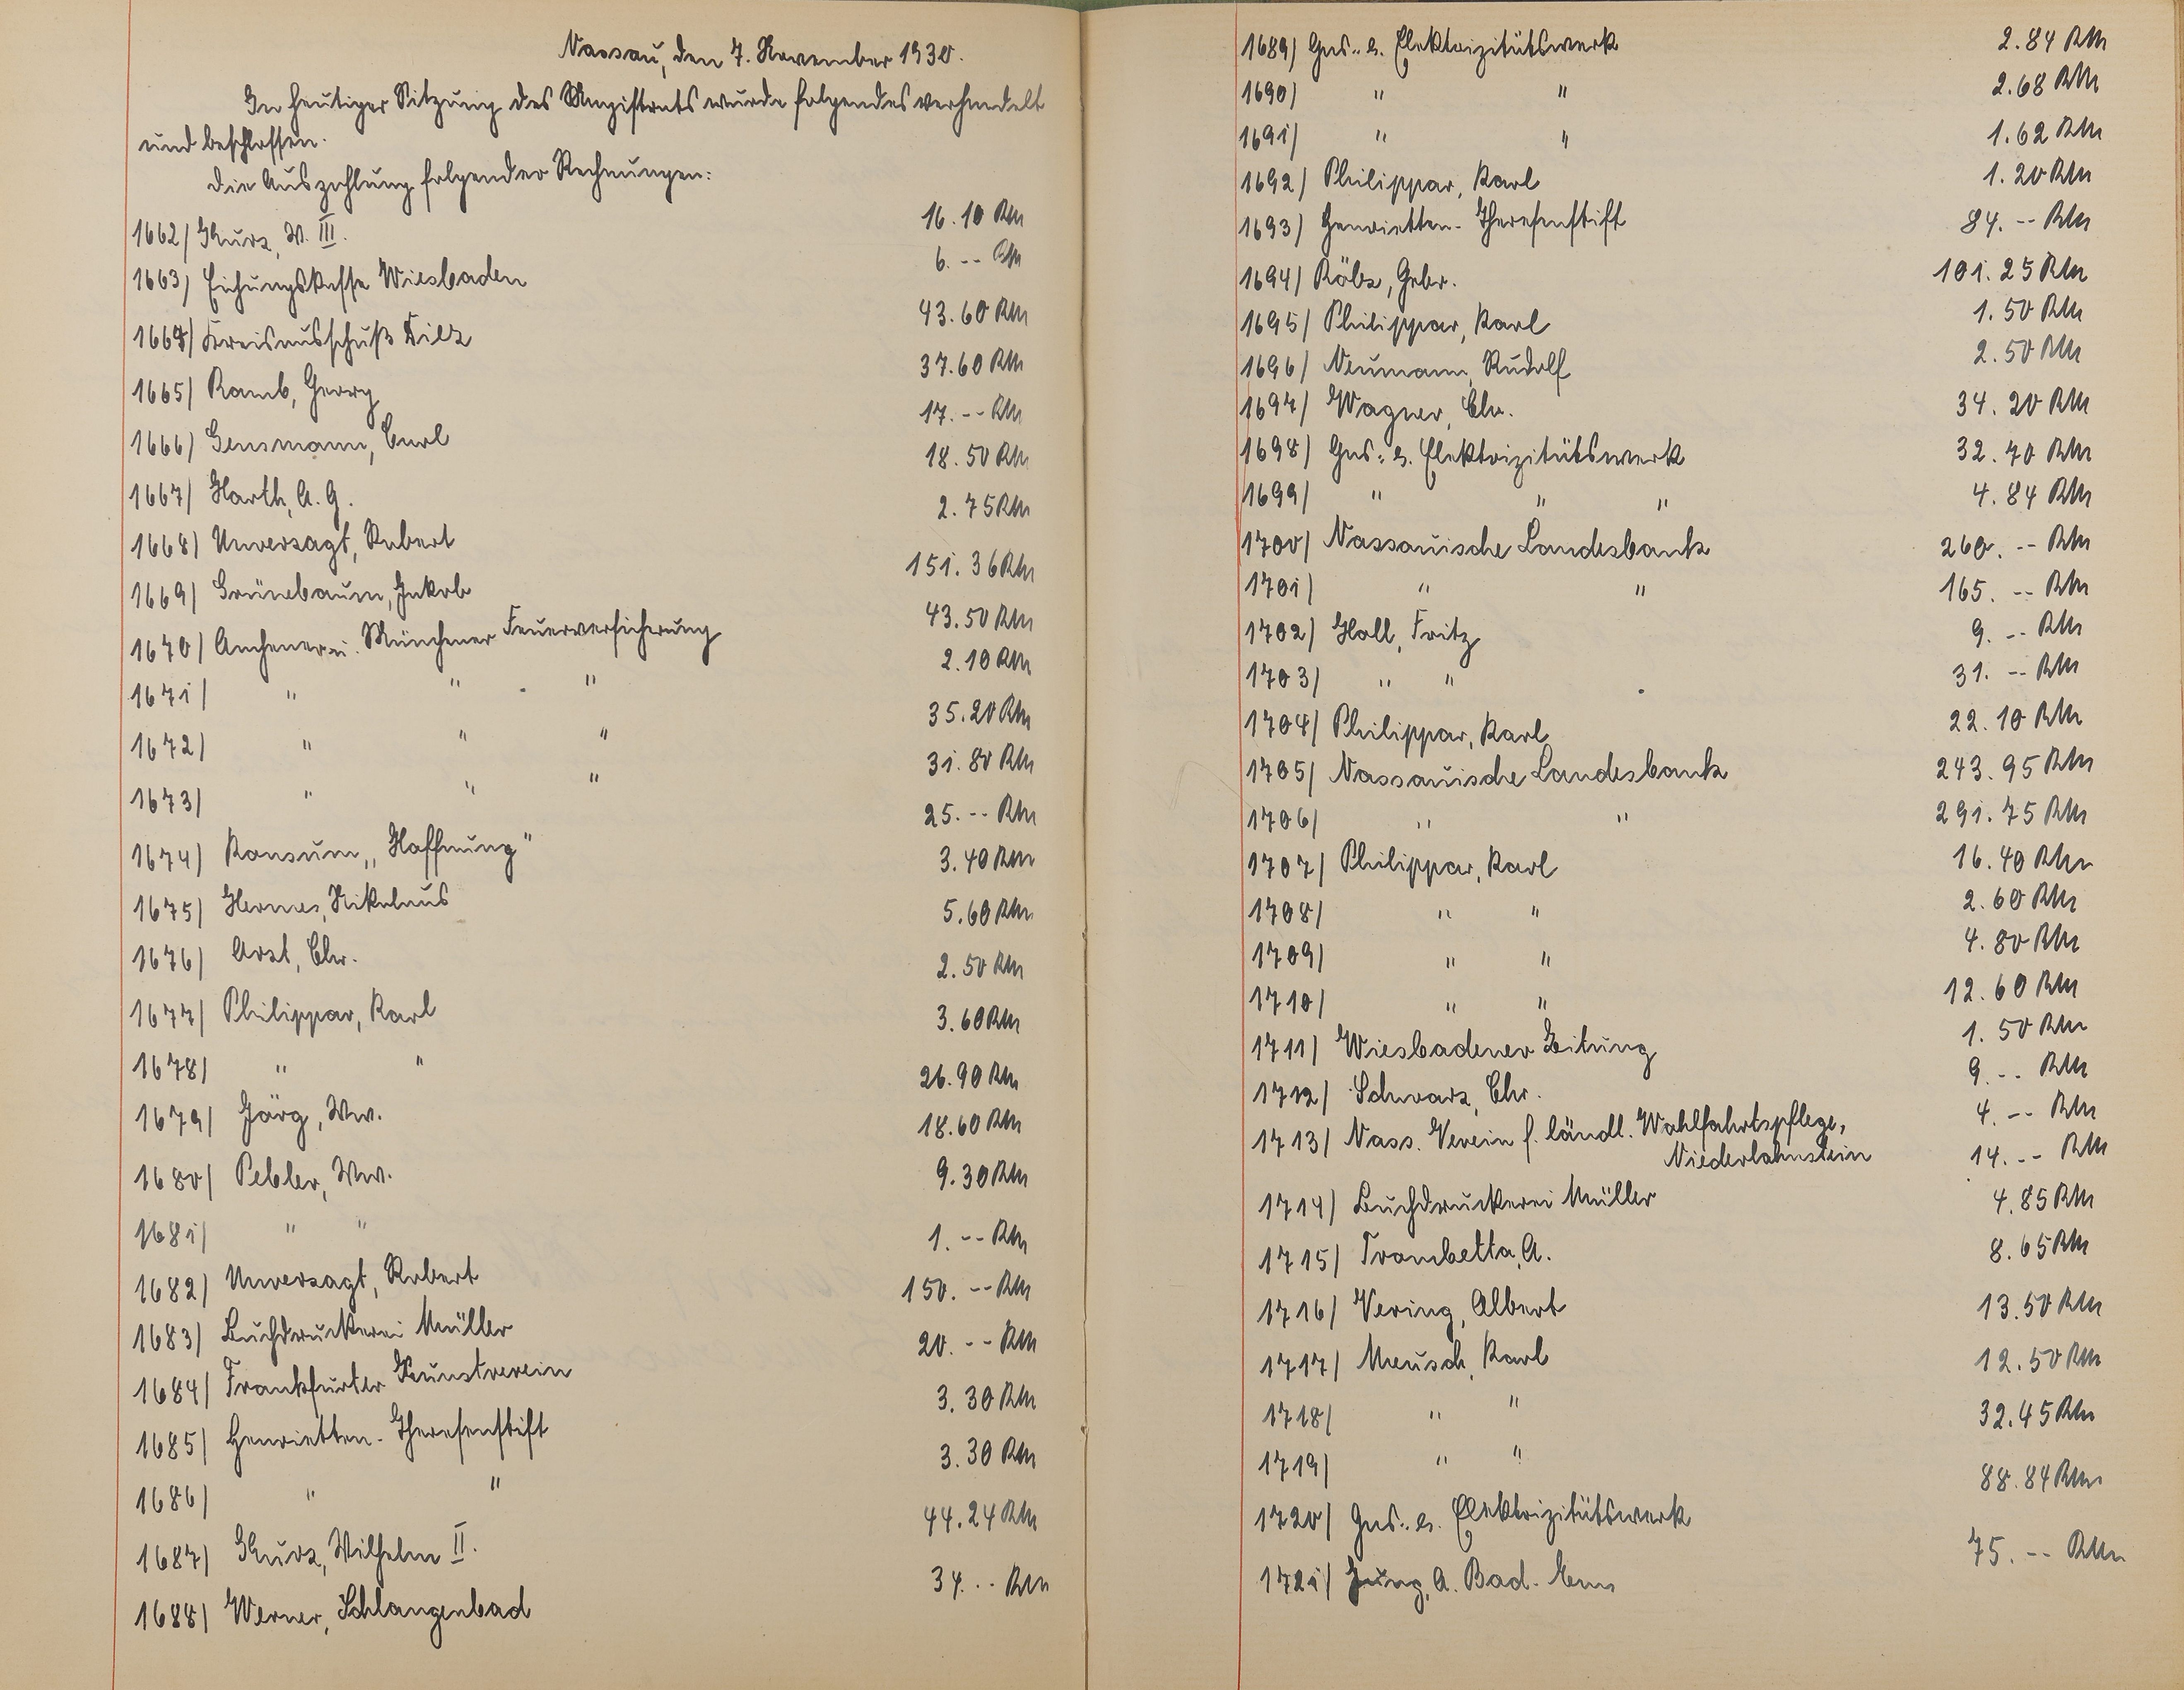 Nassau, den 7. November 1930.
In heutiger Sitzung des Magistrats wurde folgendes verhandelt
und beschlossen.
Die Auszahlung folgender Rechnungen:
1662) Kurz, W. III. 16.10 RM
1663) Eichungskasse Wiesbaden 6.-- RM
1664) Kreisausschuß Diez 43.60 RM
1665) Ramb, Georg 37.60 RM
1666) Gensmann, Carl 17.-- RM
1667) Harth, A. G. 18.50 RM
1668) Unverzagt, Robert 2.75 RM
1669) Grünebaum, Jakob 151.36 RM
1670) Aachener u. Münchener Feuerversicherung 43.50 RM
1671) " " " 2.10 RM
1672) " " " 35.20 RM
1673) " " " 31.80 RM
1674) Konsum „Hoffnung" 25.-- RM
1675) Hermes, Nikolaus 3.40 RM
1676) Arzt, Chr. 5.60 RM
1677) Philippar, Karl 2.50 RM
1678) " " 3.60 RM
1679) Jörg, Ww. 26.90 RM
1680) Pebler, Ww. 18.60 RM
1681) " " 9.30 RM
1682) Unverzagt, Robert 1.-- RM
1683) Buchdruckerei Müller 150.-- RM
1684) Frankfurter Kunstverein 20.-- RM
1685) Henrietten-Theresenstift 3.30 RM
1686) " " 3.30 RM
1687) Kurz, Wilhelm II. 44.24 RM
1688) Werner, Schlangenbad 34.-- RM
1689) Gas- u. Elektrizitätswerk 2.84 RM
1690) " " 2.68 RM
1691) " " 1.62 RM
1692) Philippar, Karl 1.20 RM
1693) Henrietten-Theresenstift 84.-- RM
1694) Kölz, Gebr. 101.25 RM
1695) Philippar, Karl 1.50 RM
1696) Neumann, Rudolf 2.50 RM
1697) Wagner, Chr. 34.20 RM
1698) Gas- u. Elektrizitätswerk 32.70 RM
1699) " " " 4.84 RM
1700) Nassauische Landesbank 260.-- RM
1701) " " 165.-- RM
1702) Holl, Fritz 9.-- RM
1703) " " 31.-- RM
1704) Philippar, Karl 22.10 RM
1705) Nassauische Landesbank 243.95 RM
1706) " " 291.75 RM
1707) Philippar, Karl 16.40 RM
1708) " " 2.60 RM
1709) " " 4.80 RM
1710) " " 12.60 RM
1711) Wiesbadener Zeitung 1.50 RM
1712) Schwarz, Chr. 9.-- RM
1713) Nass. Verein f. ländl. Wohlfahrtspflege, 4.-- RM
Niederlahnstein
1714) Buchdruckerei Müller 14.-- RM
1715) Trombetta, A. 4.85 RM
1716) Vering, Albert 8.65 RM
1717) Meusch, Karl 13.50 RM
1718) " " 12.50 RM
1719) " " 32.45 RM
1720) Gas- u. Elektrizitätswerk 88.84 RM
1721) Jung, A. Bad-Ems 75.-- RM